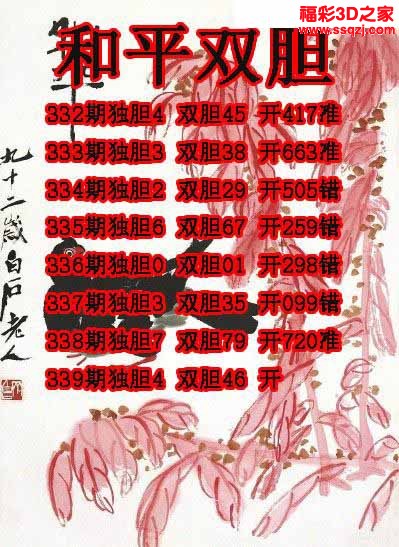 福彩3D之家
www.ssqzj.com
和平双胆
332期独胆4 双胆45 开417准
333期独胆3 双胆38 开663准
334期独胆2 双胆29 开505错
335期独胆6 双胆67 开259错
336期独胆0 双胆01 开298错
337期独胆3 双胆35 开099错
338期独胆7 双胆79 开720准
339期独胆4 双胆46 开
九十二岁白石老人